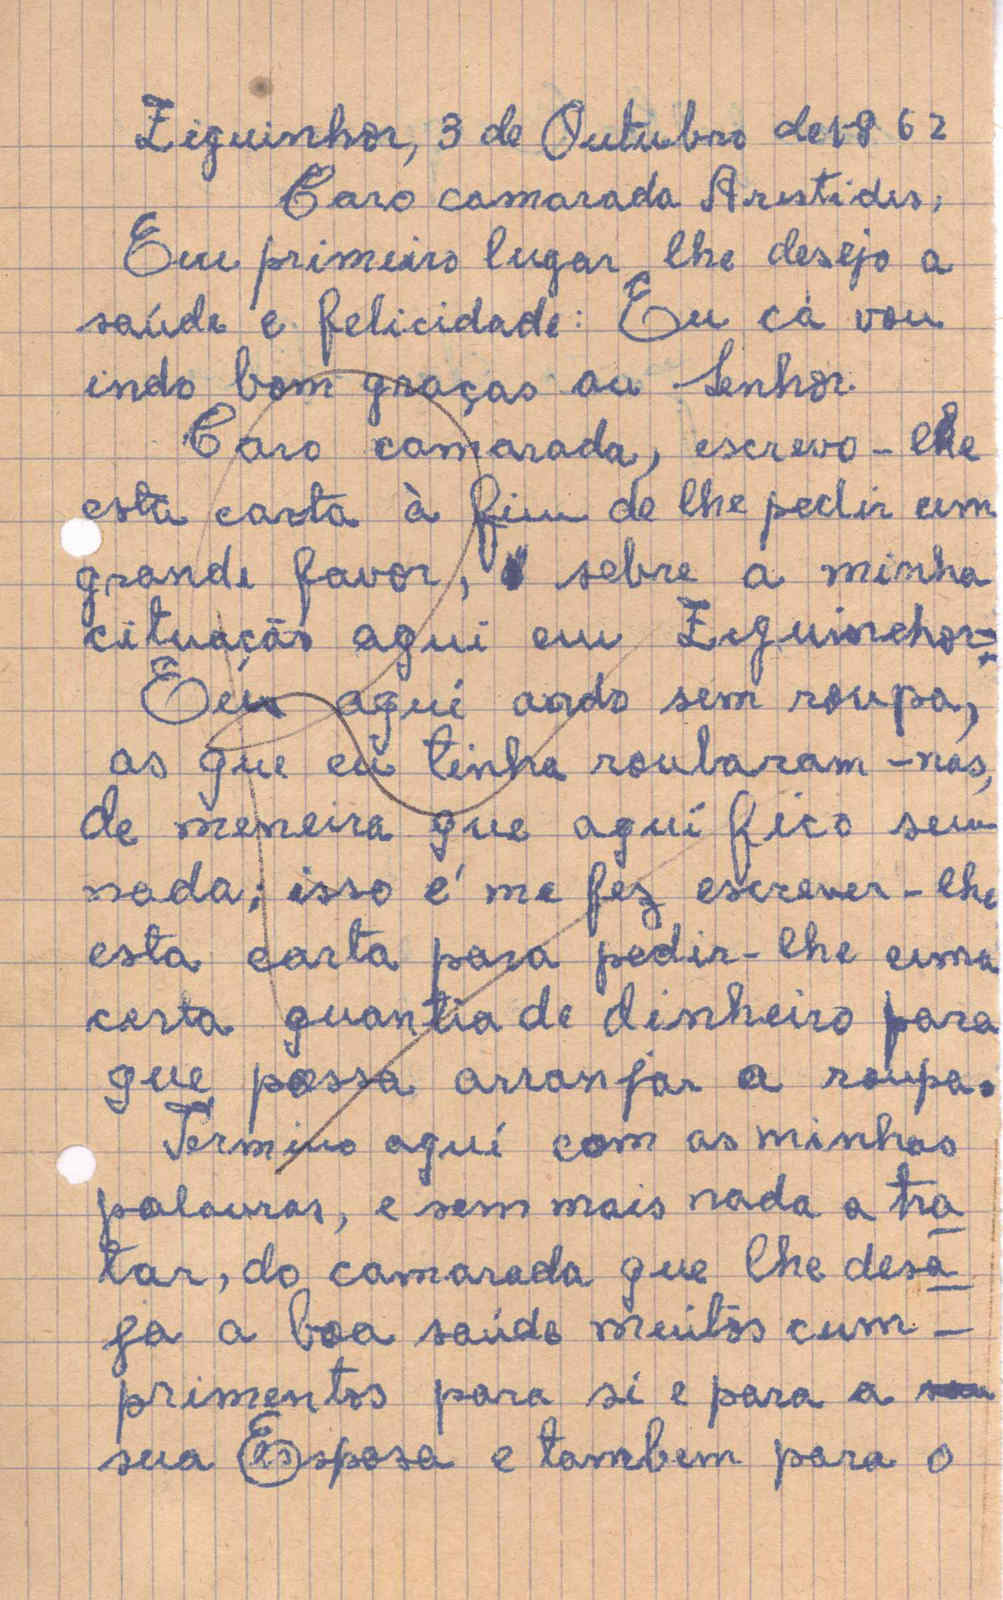 Ziguinhor, 3 de Outubro de 1862
Caro camarada Aristides,
Em primeiro lugar lhe desejo a
saúde e felicidade: Eu cá vou
indo bom graças au Senhor.
Caro camarada, escrevo-lhe
esta carta à fim de lhe pedir um
grande favor, sebre a minha
cituação aqui em Ziguinchor:
Eu aqui ando sem roupa,
as que eu tinha roubaram-nas,
de meneira que aqui fico sem
nada; isso é me fez escrever-lhe
esta carta para pedir-lhe uma
certa quantia de dinheiro para
que possa arranjar a roupa.
Termino aqui com as minhas
palavras, e sem mais nada a tra
tar, do camarada que lhe dese
ja a boa saúde muitos cum-
primentos para si e para a
sua Esposa e tambem para o